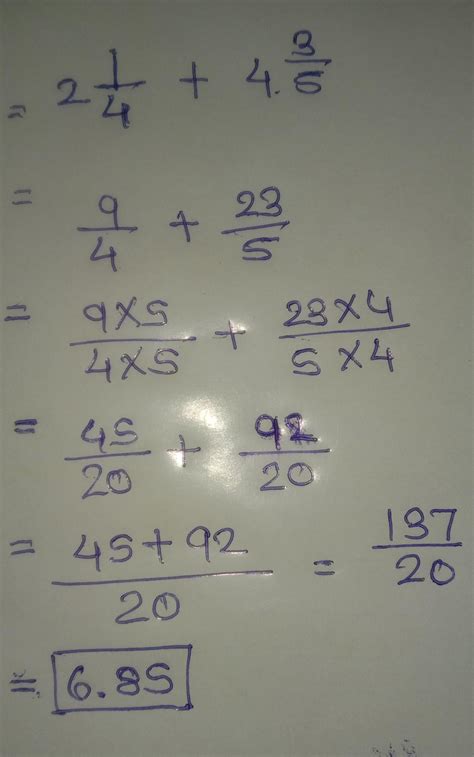 = 2 1/4 + 4. 3/5
= 9/4 + 23/5
= 9×5/4×5 + 23×4/5×4
= 45/20 + 92/20
= 45+92/20 = 137/20
= 6.85